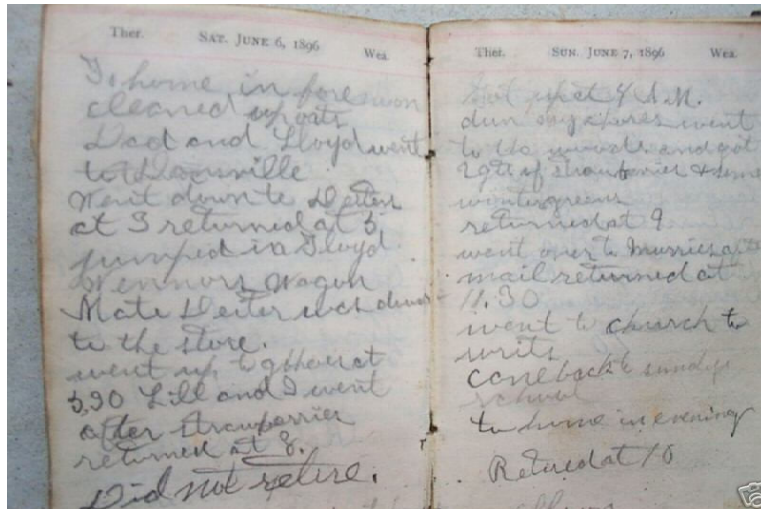 Ther. SAT. JUNE 6, 1896 Wea.
To home in forenoon
cleaned up oats
Dad and Lloyd went
to
Went down to Deiter
at 3 returned at 5.
jumped in Lloyd
Wennors Wagon
Mate Deiter was down
to the store.
went up to at
5,30 Lill and I went
after strawberries
returned at 8.
Did not retire.
Ther. SUN. JUNE 7, 1896 Wea.
Got up at 4 A.M.
dun my chores went
to the woods and got
2 qts of strawberries & some
wintergreens
returned at 9
went over to after
mail returned at
11.30
went to church to
come back to sunday
school
to home in evening
Retired at 10